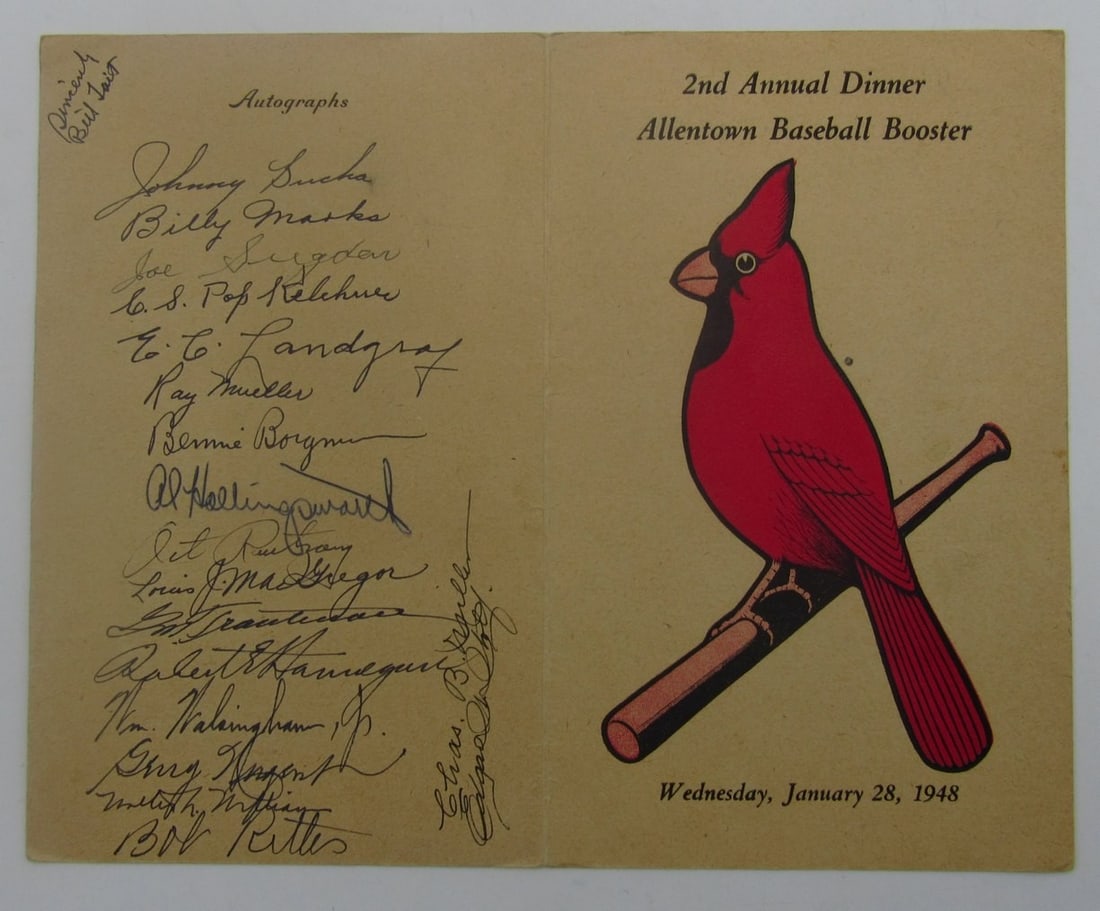 Sincerely
Bill Tait
Autographs
Johnny Sucha
Billy Marks
Joe Sugden
C. S. Pop Kelchner
E. C. Landgraf
Ray Mueller
Bennie Borgmann
Al Hollingsworth
Art
Louis J. MacGregor
Geo Trautman
Robert E Hannegan
Wm. Walsingham, Jr.
Gerry Nugent
Bob
Chas. B.
2nd Annual Dinner
Allentown Baseball Booster
Wednesday, January 28, 1948